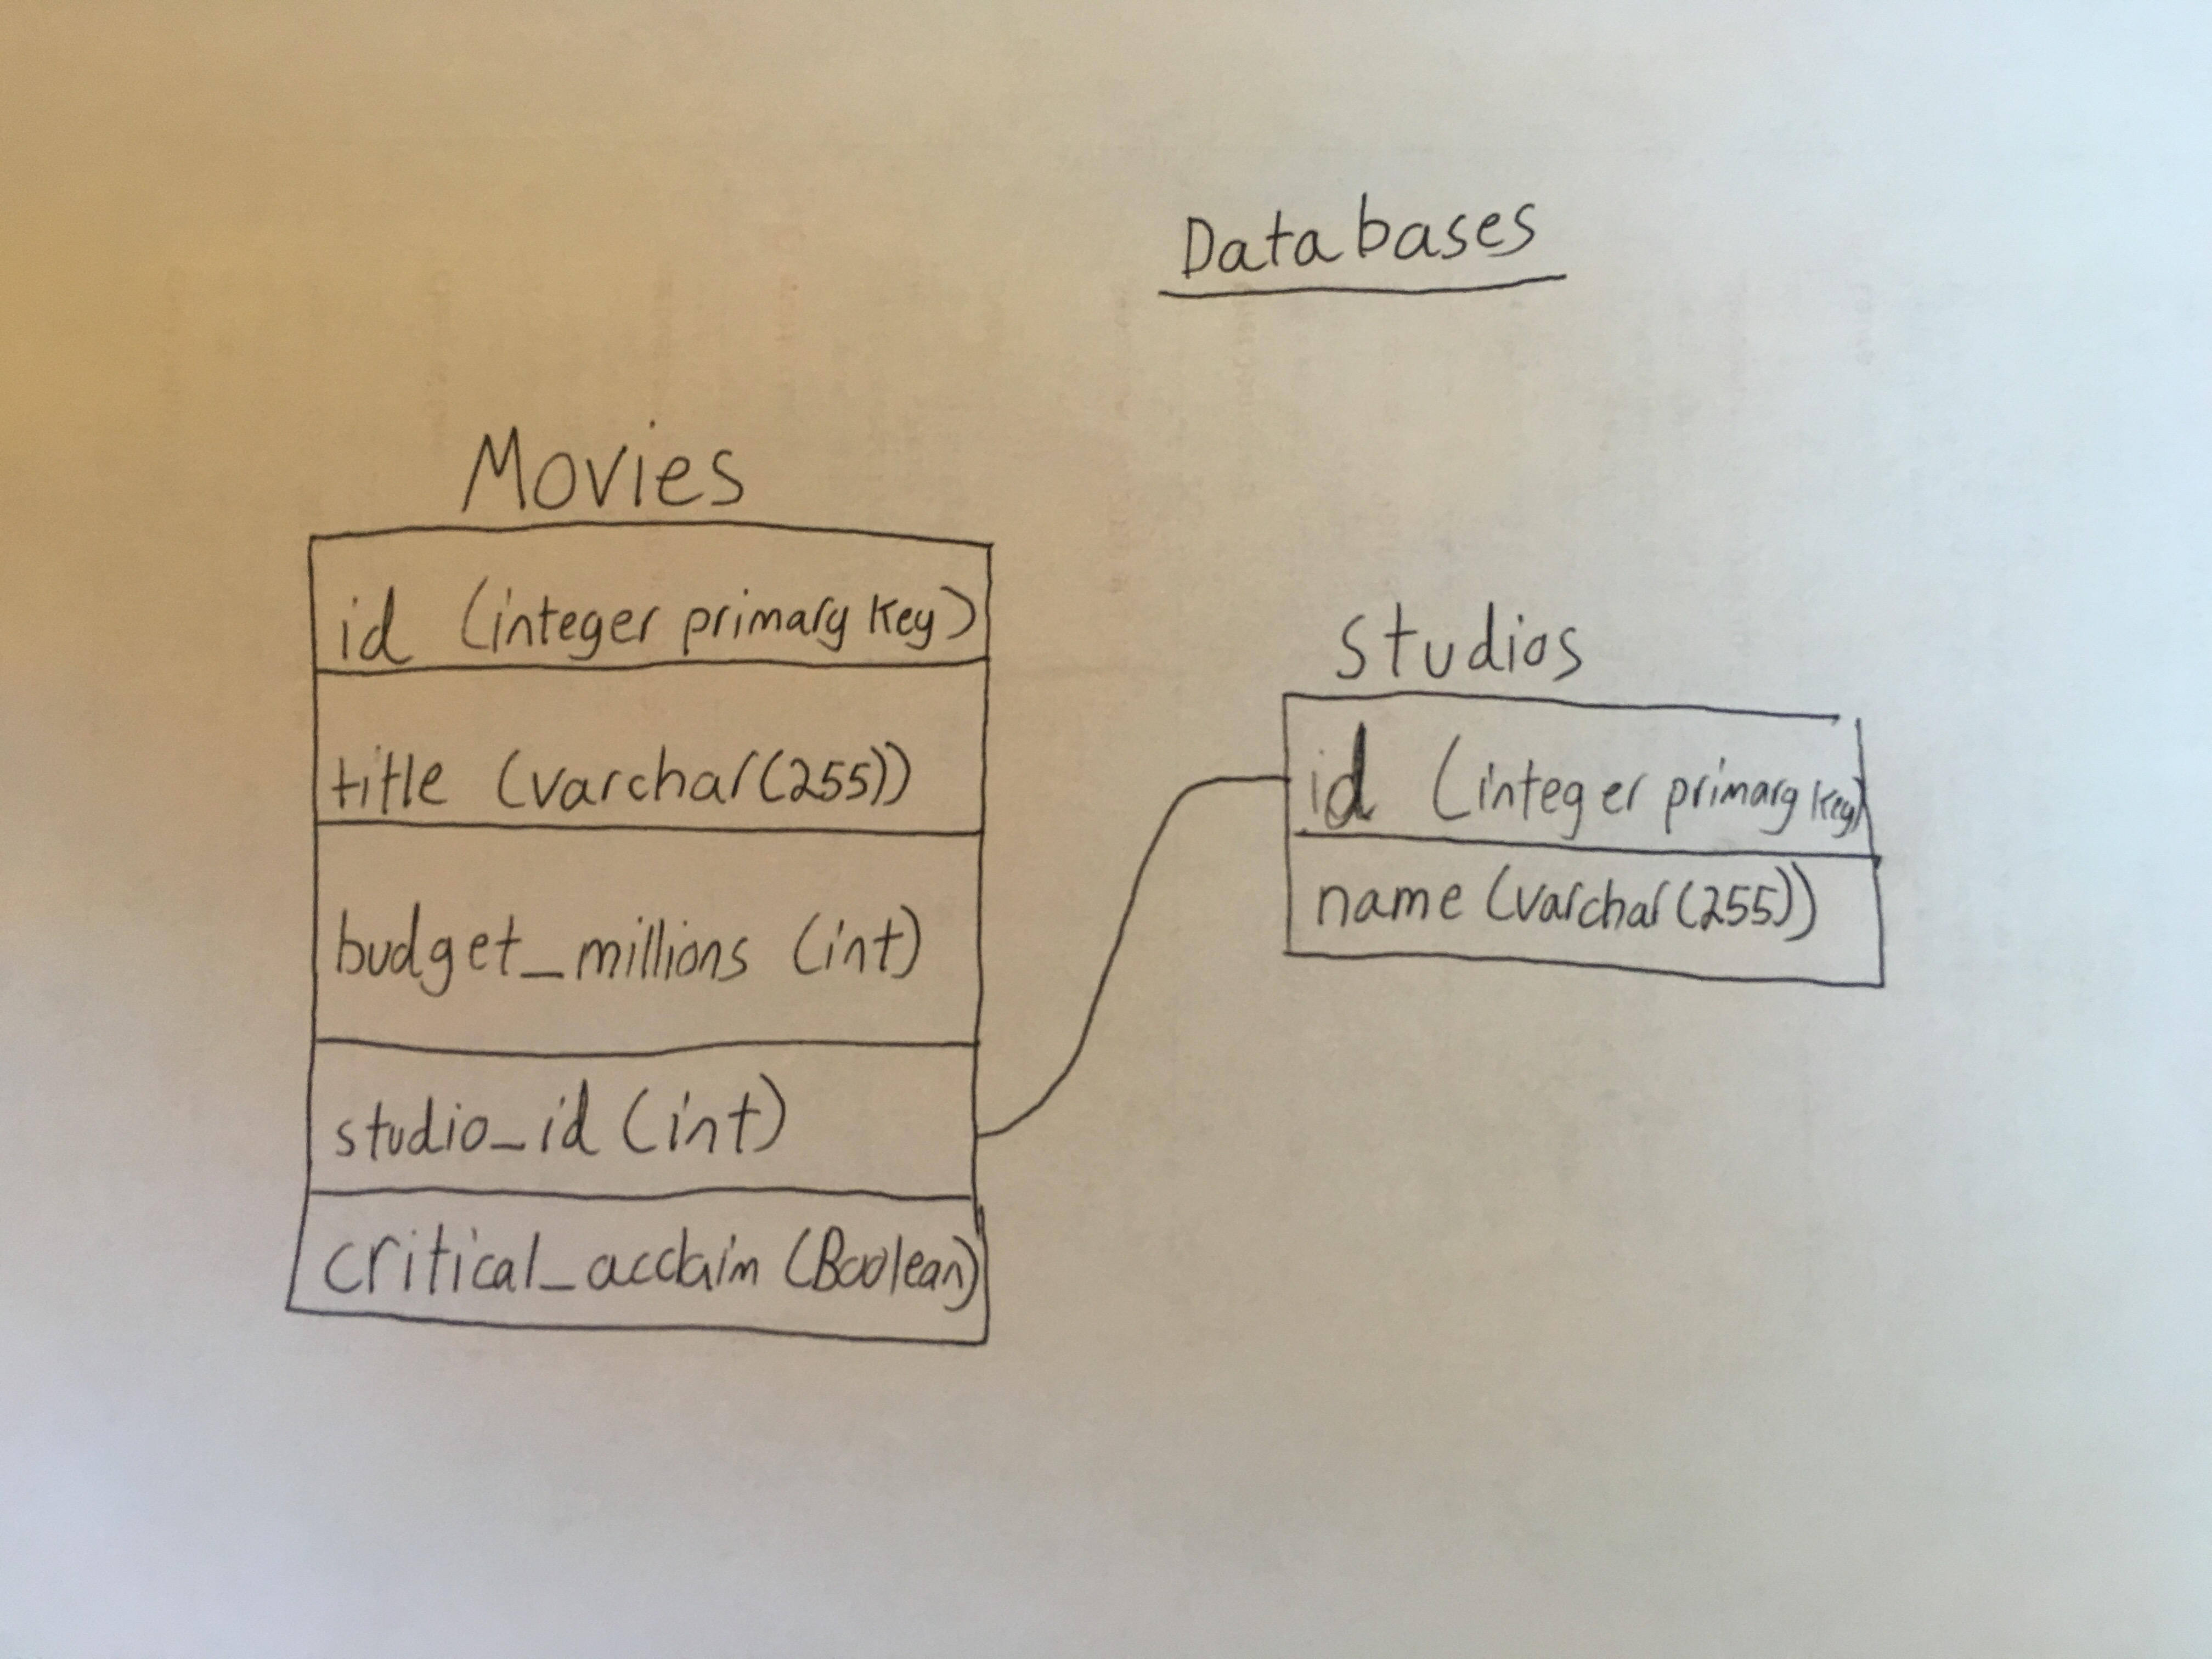 Databases
Movies
id (integer primary key)
title (varchar(255))
budget_millions (int)
studio_id (int)
critical_acclaim (Boolean)
studios
id (integer primary key)
name (varchar(255))